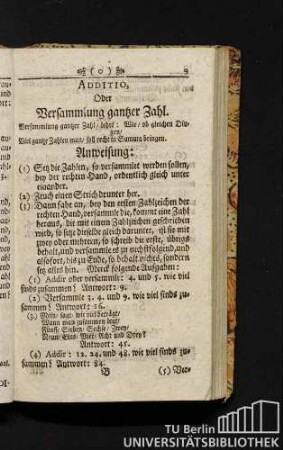 ( 0 ) 9
ADDITIO,
Oder
Versammlung gantzer Zahl.
Versammlung gantzer Zahl/ lehrt: Wie/ ob gleichen Din-
gen/
Viel gantze Zahlen man/ soll recht in Summa bringen.
Anweisung:
(1) Setz die Zahlen, so versammlet werden sollen,
bey der rechten Hand, ordentlich gleich unter
einander.
(2) Zeuch einen Strich drunter her.
(3) Dann fahe an, bey den ersten Zahlzeichen der
rechten Hand, versammle die, kommt eine Zahl
heraus, die mit einem Zahlzeichen geschrieben
wird, so setz dieselbe gleich darunter, ist sie mit
zwey oder mehrern, so schreib die erste, übrigs
behalt, und versammle es zu nechstfolgend, und
alsofort, bis zu Ende, so behalt nichts, sondern
setz alles hin. Merck folgende Aufgaben:
(1) Addir oder versammle: 4. und 5. wie viel
sinds zusammen? Antwort: 9.
(2) Versammle 3. 4. und 9. wie viel sinds zu-
sammen? Antwort: 16.
(3) Mein/ sag/ wie viel beträgt/
Wann man zusammen legt/
Fünffe Sieben/ Sechse/ Zwey/
Neun/ Eins/ Vier/ Acht und Drey?
Antwort: 45.
(4) Addir: 12. 24. und 48. wie viel sinds zu-
sammen? Antwort: 84.
B (5) Ver-
TU Berlin
UNIVERSITÄTSBIBLIOTHEK